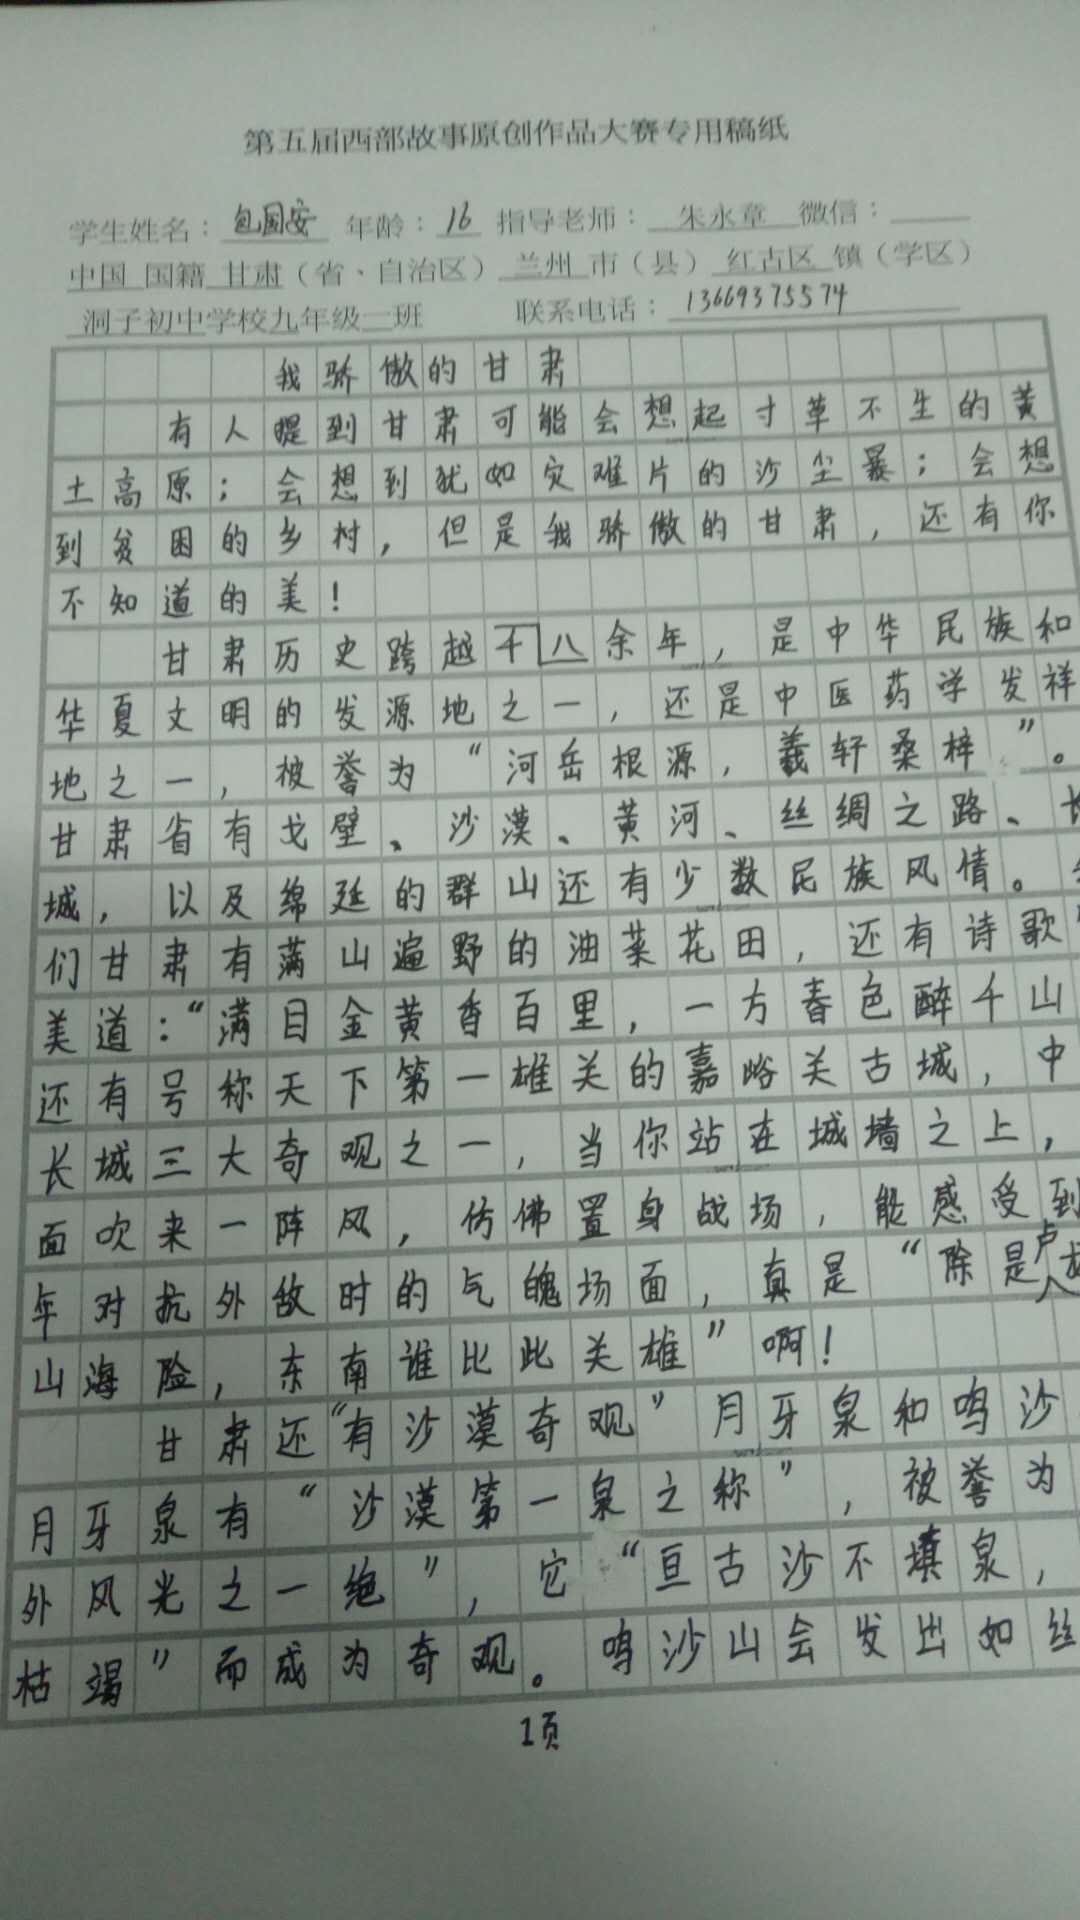 第五届西部故事原创作品大赛专用稿纸
学生姓名：包国安 年龄：16 指导老师：朱永章 微信：
中国 国籍 甘肃（省、自治区）兰州 市（县）红古区 镇（学区）
洞子初中学校九年级二班 联系电话：13669375574
我骄傲的甘肃
有人提到甘肃可能会想起寸草不生的黄
土高原；会想到犹如灾难片的沙尘暴；会想
到贫困的乡村，但是我骄傲的甘肃，还有你
不知道的美！
甘肃历史跨越千八余年，是中华民族和
华夏文明的发源地之一，还是中医药学发祥
地之一，被誉为“河岳根源，羲轩桑梓”。
甘肃省有戈壁、沙漠、黄河、丝绸之路、长
城，以及绵延的群山还有少数民族风情。
们甘肃有满山遍野的油菜花田，还有诗歌
美道：“满目金黄香百里，一方春色醉千山
还有号称天下第一雄关的嘉峪关古城，中
长城三大奇观之一，当你站在城墙之上，
面吹来一阵风，仿佛置身战场，能感受到
年对抗外敌时的气魄场面，真是“除是卢龙
山海险，东南谁比此关雄”啊！
甘肃还“有沙漠奇观”月牙泉和鸣沙
月牙泉有“沙漠第一泉之称”，被誉为
外风光之一绝”，它“亘古沙不填泉，
枯竭”而成为奇观。鸣沙山会发出如丝
1页